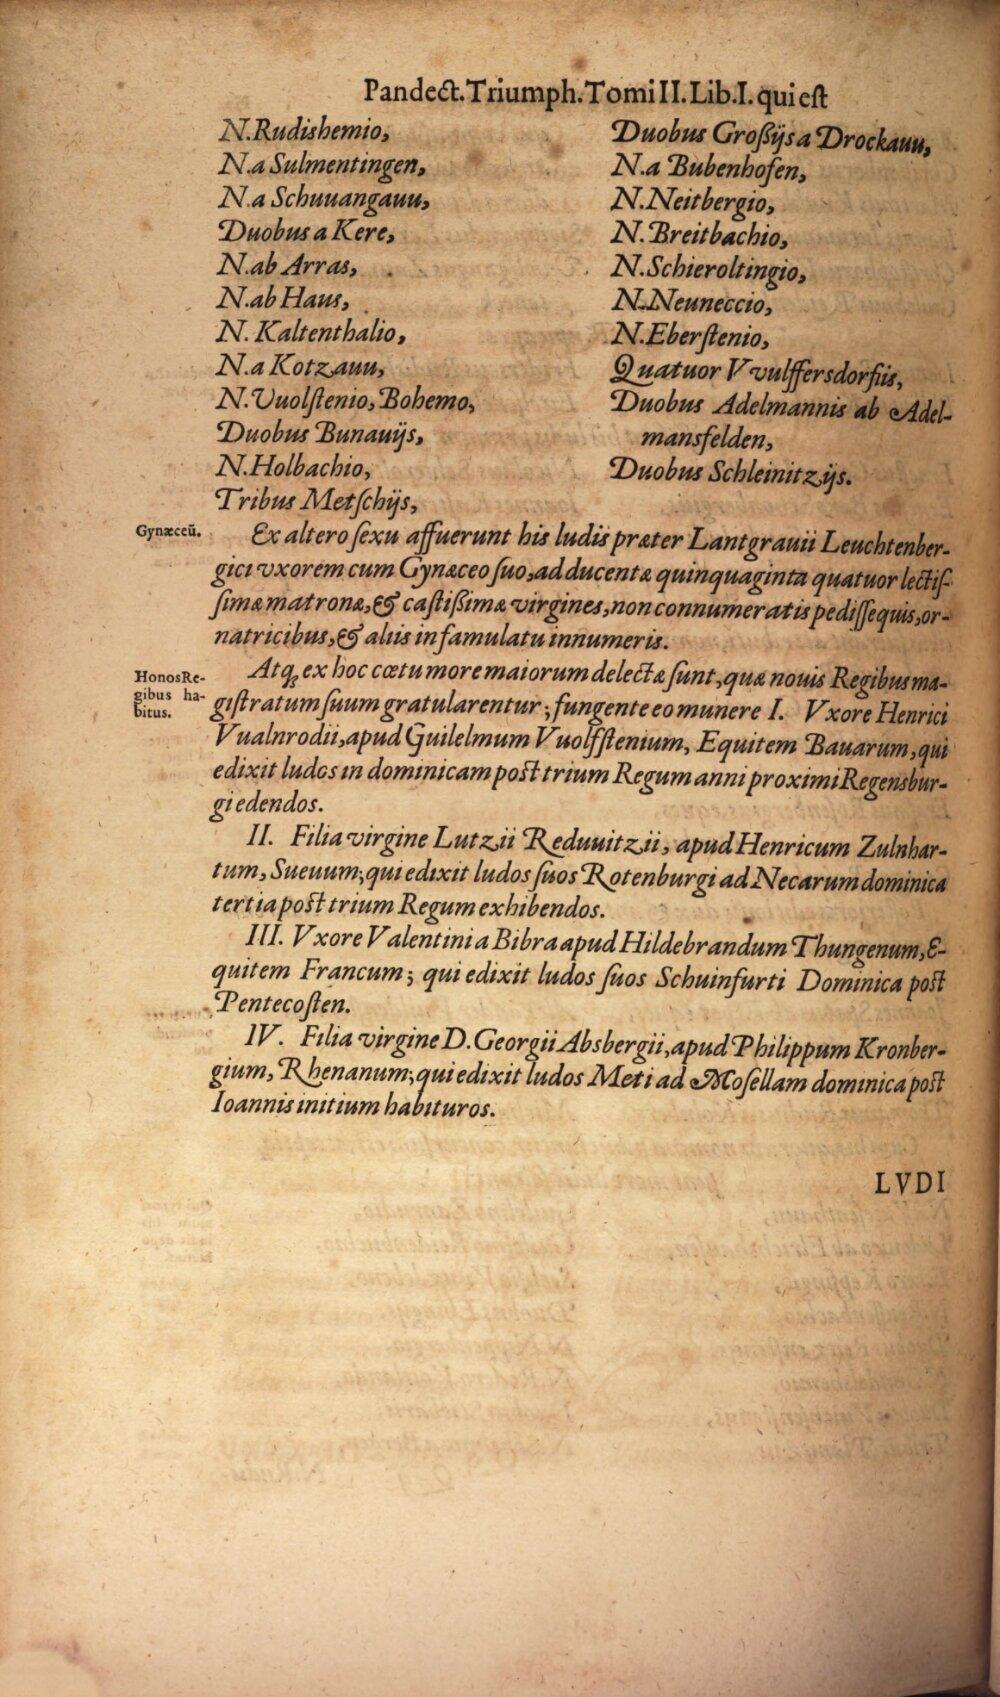 Pandect.Triumph.Tomi II.Lib.I. qui est
N.Rudishemio,
N.a Sulmentingen,
N.a Schuuangauu,
Duobus a Kere,
N.ab Arras,
N.ab Haus,
N. Kaltenthalio,
N.a Kotzauu,
N.Vuolſtenio, Bohemo,
Duobus Bunauijs,
N.Holbachio,
Tribus Metſchijs,
Duobus Großijs a Drockauu,
N.a Bubenhofen,
N.Neitbergio,
N.Breitbachio,
N.Schieroltingio,
N.Neuneccio,
N.Eberſtenio,
Quatuor Vvulffersdorfiis,
Duobus Adelmannis ab Adel-
mansfelden,
Duobus Schleinitzijs.
Gynæceũ.
Ex altero ſexu affuerunt his ludis præter Lantgrauii Leuchtenber-
gici vxorem cum Gynæceo ſuo, ad ducentæ quinquaginta quatuor lectiſ-
ſimæ matronæ, & caſtißimæ virgines, non connumeratis pediſſequis, or-
natricibus, & aliis in famulatu innumeris.
Honos Re-
gibus ha-
bitus.
Atq; ex hoc cœtu more maiorum delectæ ſunt, quæ nouis Regibus ma-
giſtratum ſuum gratularentur; fungente eo munere I. Vxore Henrici
Vualnrodii, apud Guilelmum Vuolfſtenium, Equitem Bauarum, qui
edixit ludos in dominicam poſt trium Regum anni proximi Regensbur-
gi edendos.
II. Filia virgine Lutzii Reduuitzii, apud Henricum Zulnhar-
tum, Sueuum; qui edixit ludos ſuos Rotenburgi ad Necarum dominica
tertia poſt trium Regum exhibendos.
III. Vxore Valentini a Bibra apud Hildebrandum Thungenum, E-
quitem Francum; qui edixit ludos ſuos Schuinfurti Dominica poſt
Pentecoſten.
IV. Filia virgine D. Georgii Absbergii, apud Philippum Kronber-
gium, Rhenanum; qui edixit ludos Meti ad Moſellam dominica poſt
Ioannis initium habituros.
LVDI